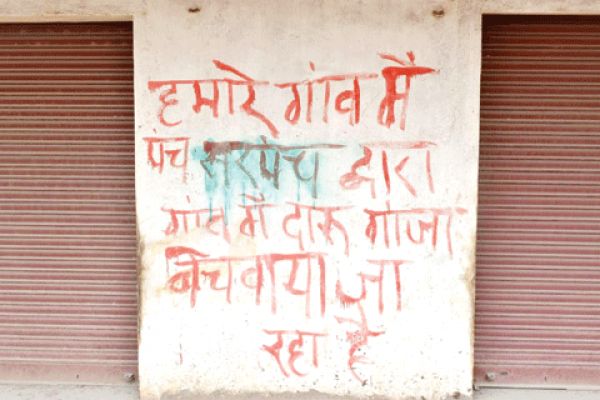 हमारे गांव मैं
पंच सरपंच द्वारा
गांव मैं दारू गांजा
बेचवाया जा
रहा है